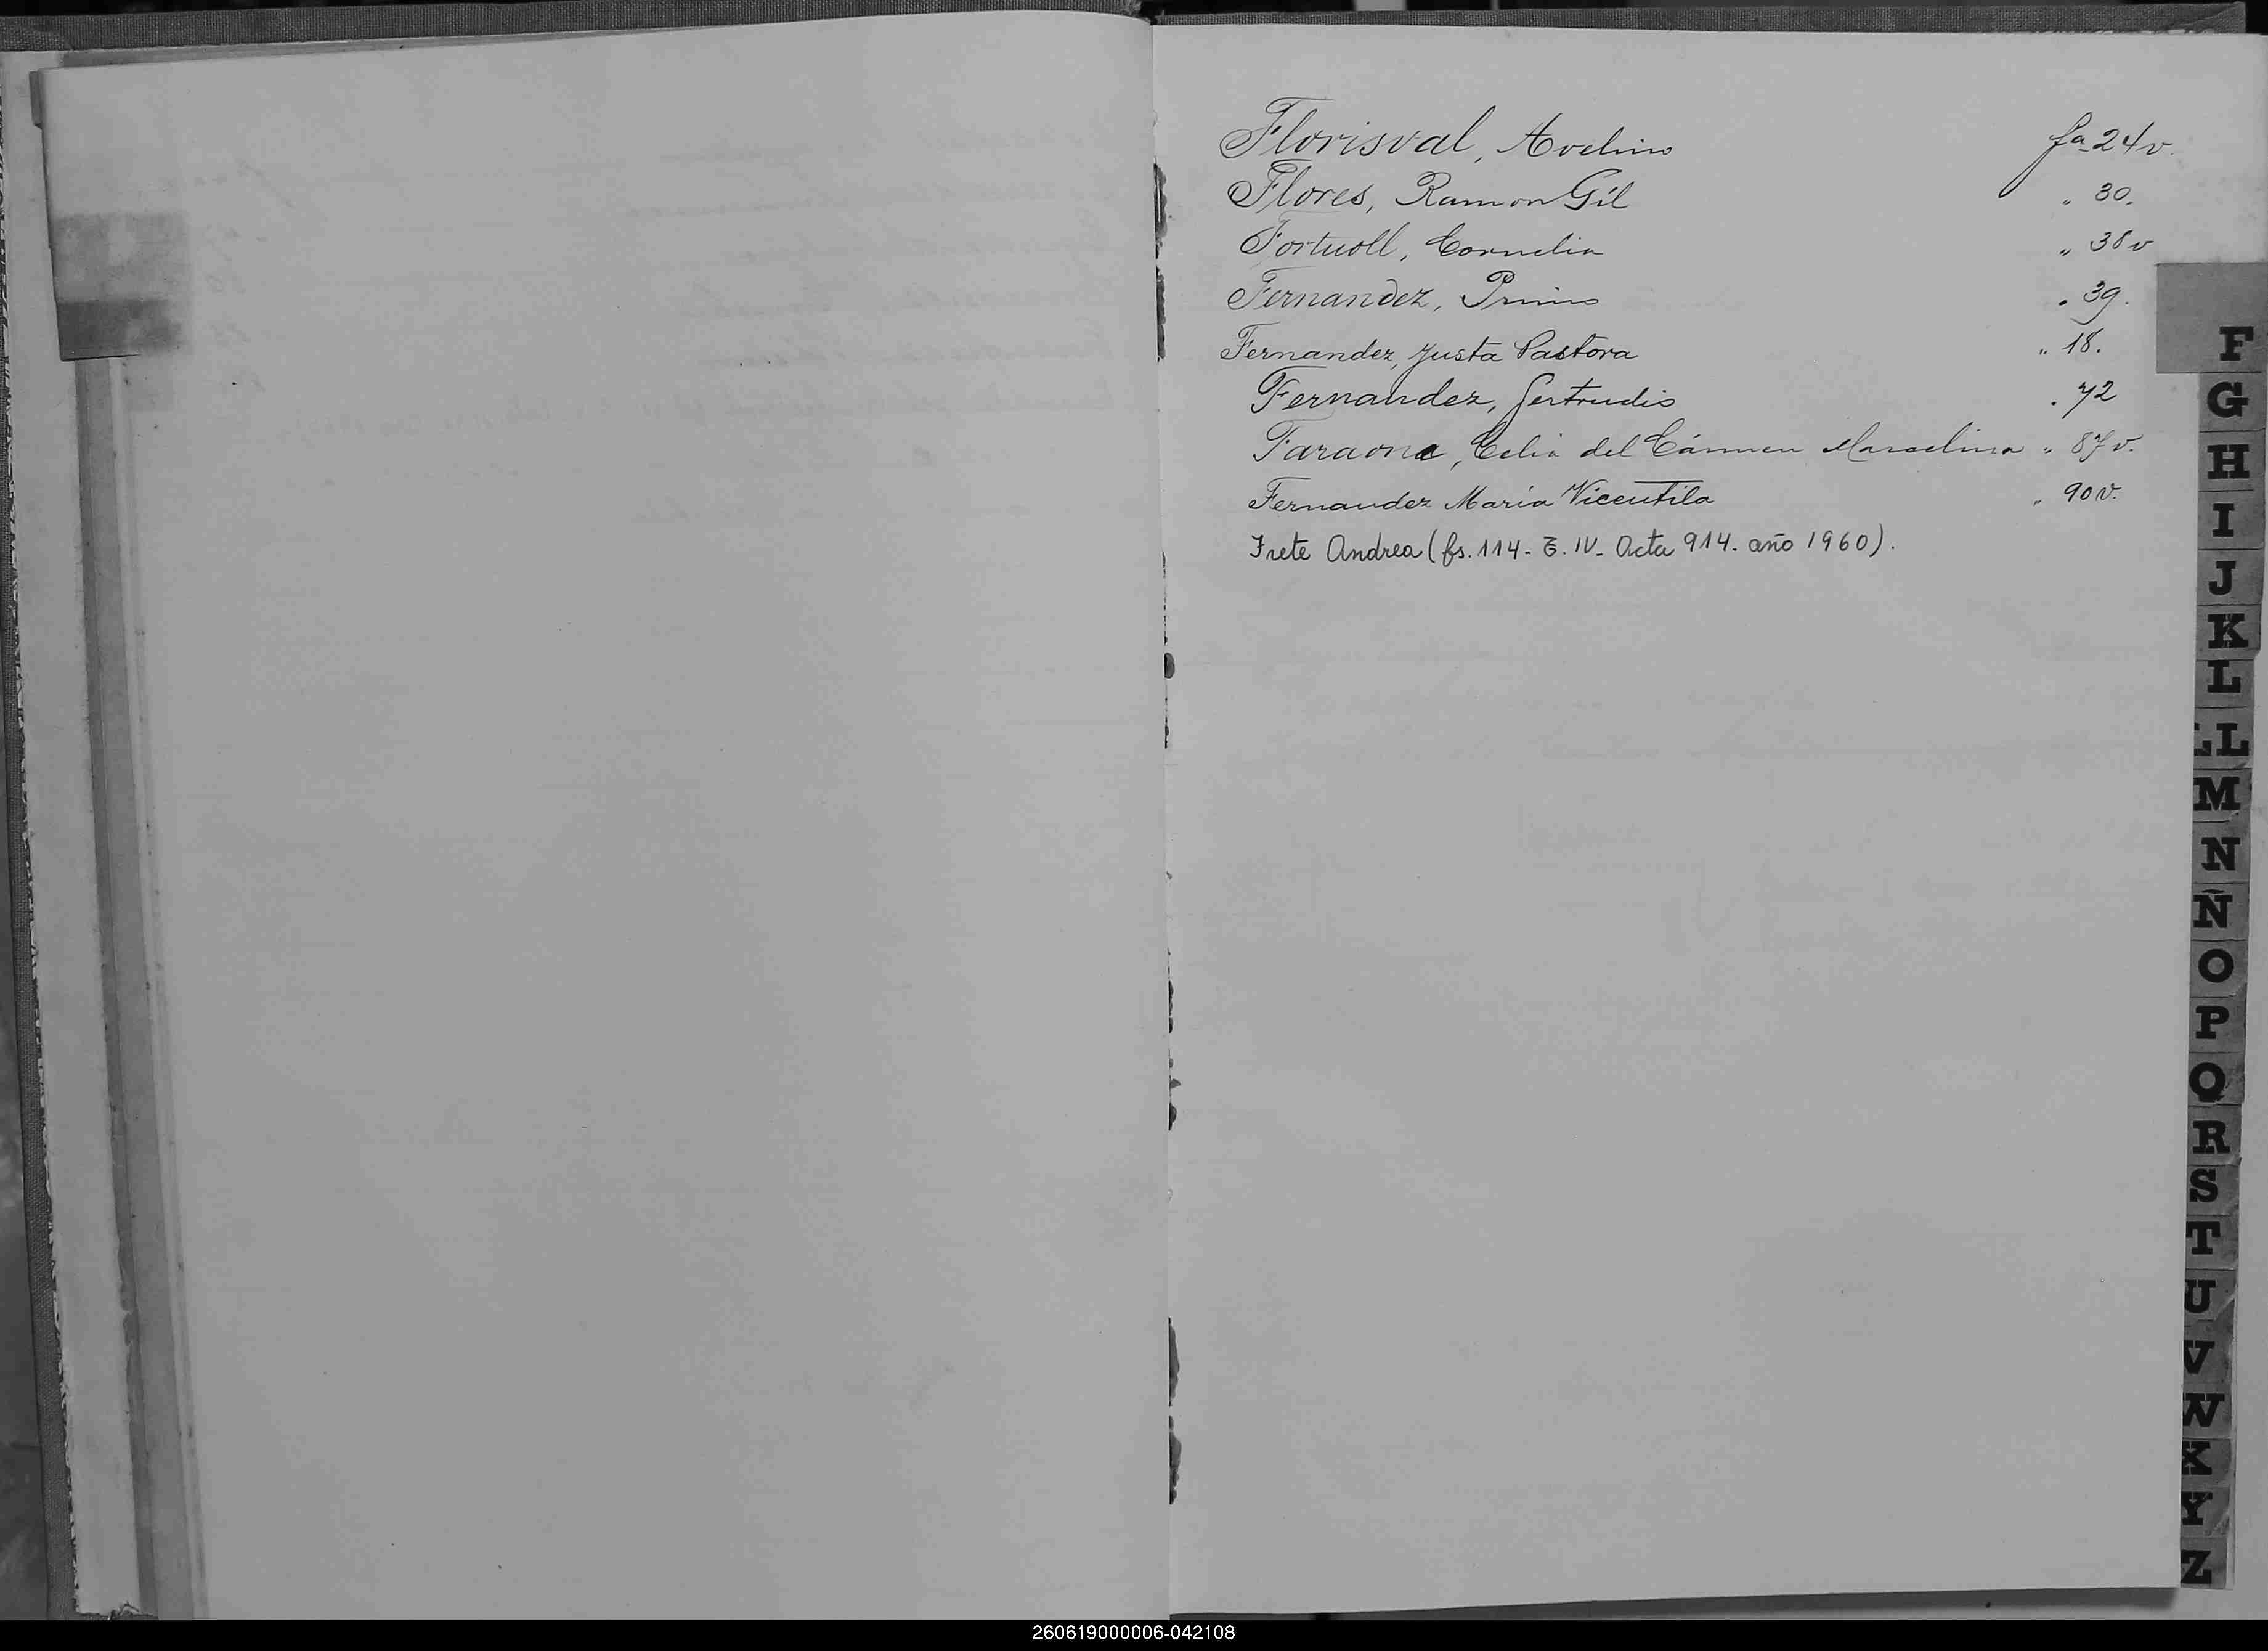 Florisval, Avelino fa 24v.
Flores, Ramon Gil " 30.
Fortuoll, Cornelia " 38v
Fernandez, Primo " 39.
Fernandez, Justa Pastora " 18.
Fernandez, Gertrudis " 72
Faraona, Celia del Cármen Marcelina " 87v.
Fernandez María Vicentila " 90v.
Frete Andrea (fs. 114- T. IV- Acta 914- año 1960).
F
G
H
I
J
K
L
LL
M
N
Ñ
O
P
Q
R
S
T
U
V
W
X
Y
Z
260619000006-042108